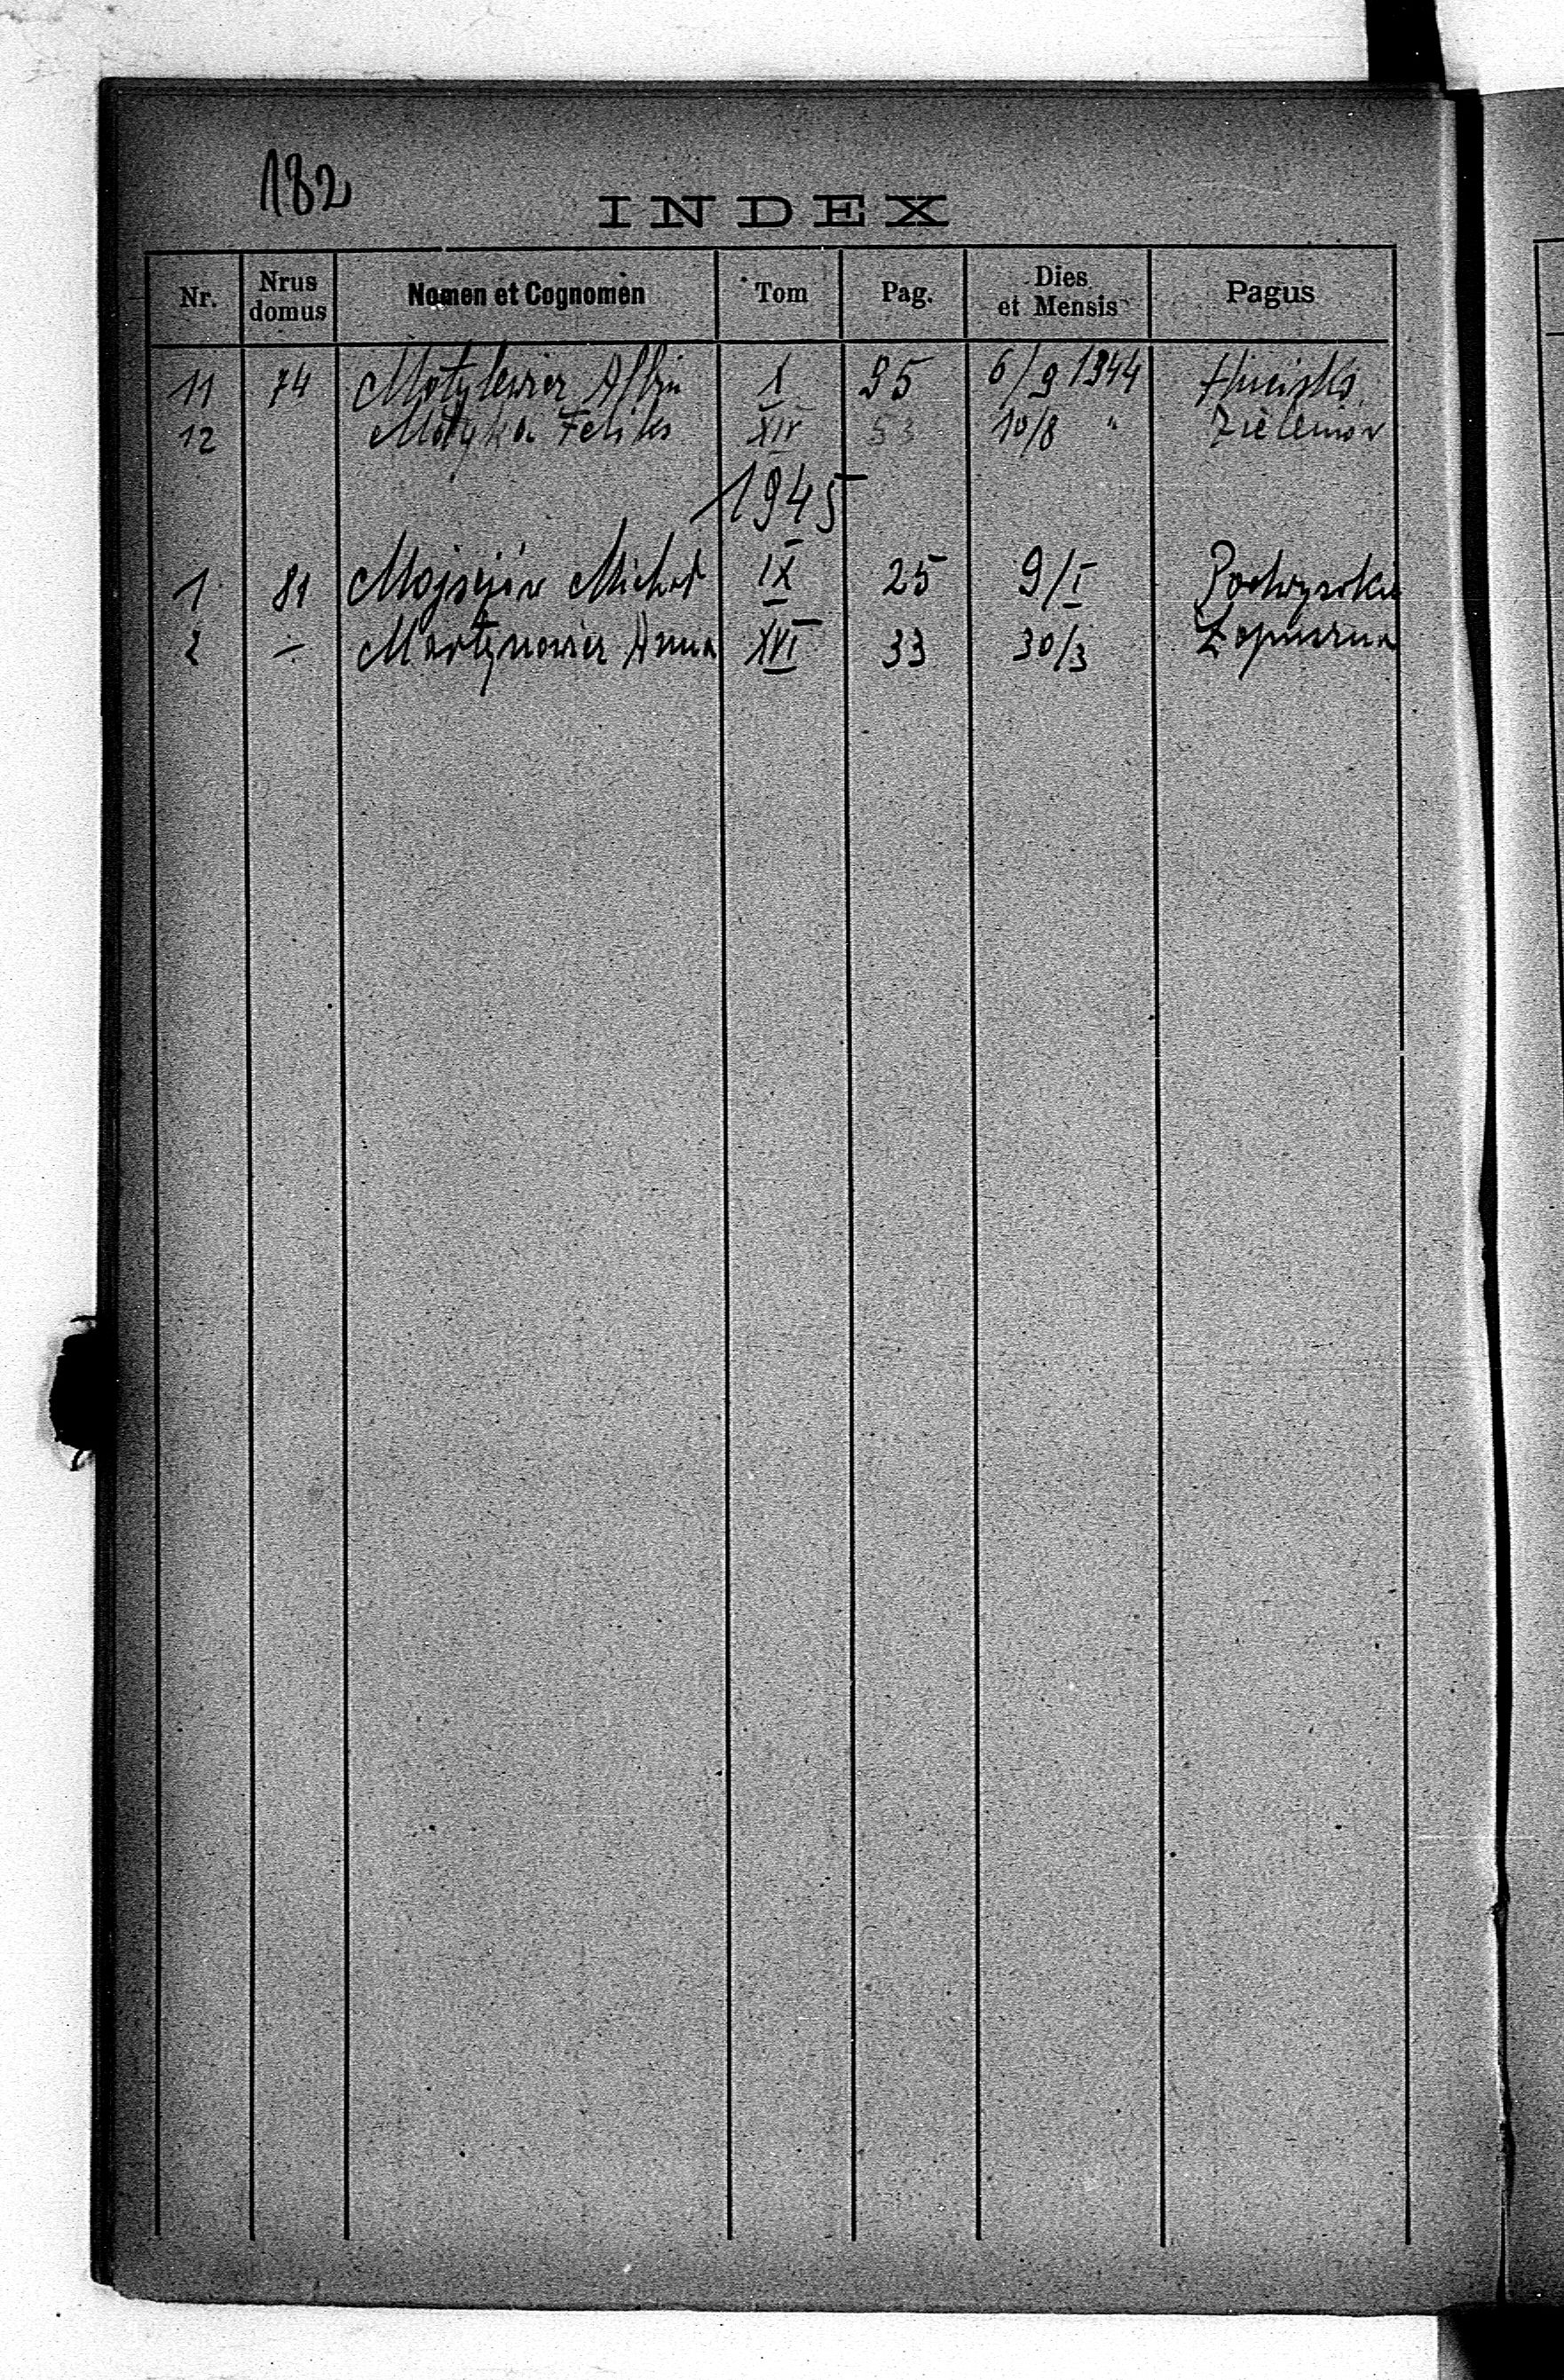 182
INDEX
Nr. Nrus domus Nomen et Cognomen Tom Pag. Dies et Mensis Pagus
11 74 Motylewicz Albin X 95 6/9 1944 Huciska
12 Motyka Feliks XIV 53 10/8 "
1945
1 81 Michał IX 25 9/I Podwysokie
2 – Martynowicz Anna XVI 33 30/3 Łopuszna